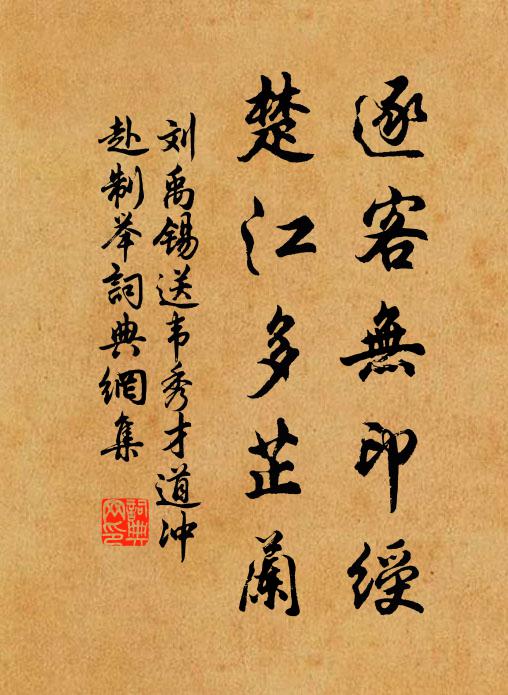 逐客無印綬
楚江多芷蘭
刘禹锡送韦秀才道冲
赴制举詞典網集
詞典網印